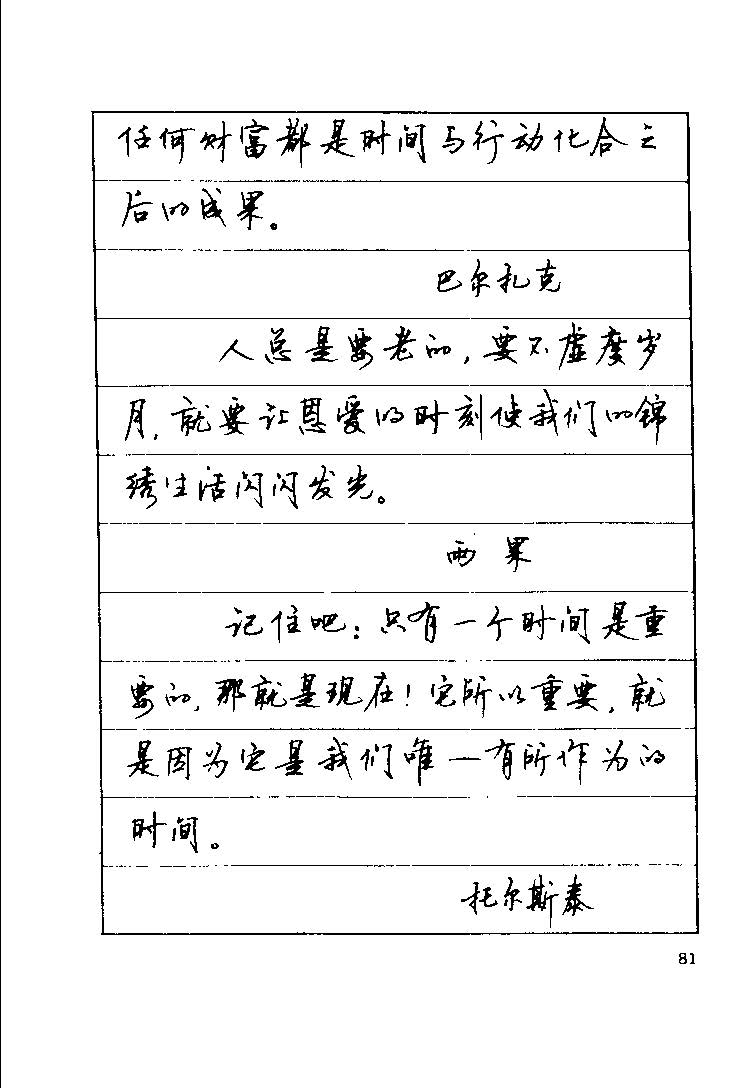 任何财富都是时间与行动化合之
后的成果。
巴尔扎克
人总是要老的，要不虚度岁
月，就要让恩爱的时刻使我们的锦
绣生活闪闪发光。
雨果
记住吧：只有一个时间是重
要的，那就是现在！它所以重要，就
是因为它是我们唯一有所作为的
时间。
托尔斯泰
81